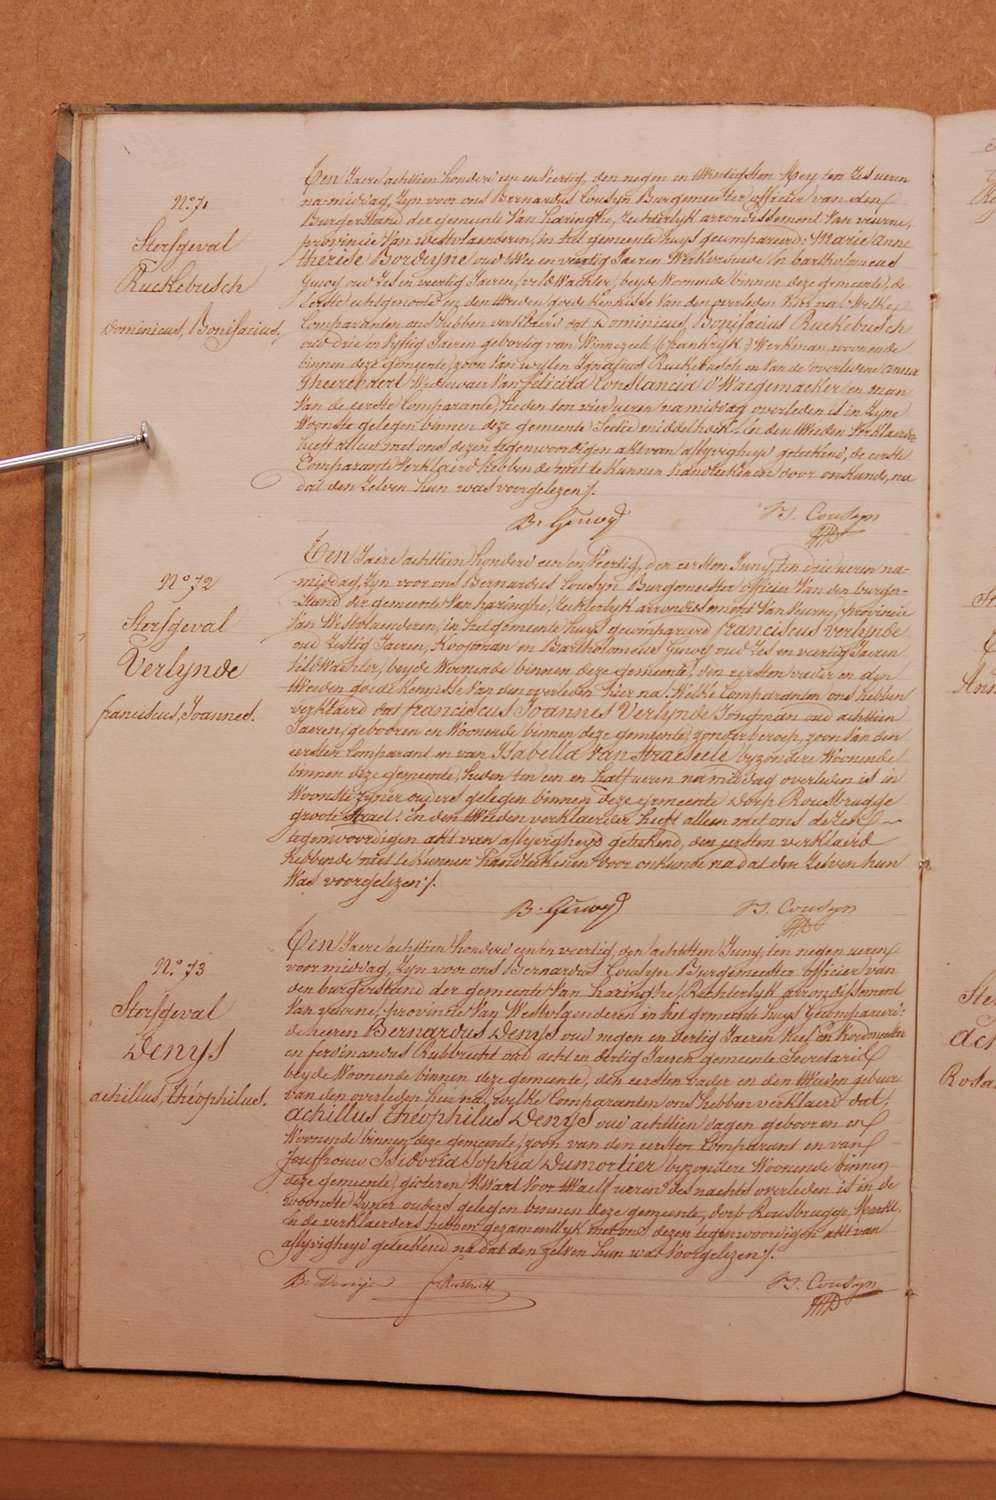 N° 71
Sterfgeval
Ruckebusch
Dominicus, Bonifacius,
Ten Jaere achttien honderd een en veertig, den negen en twintigsten Mey ten zes ueren
na-middag, Zyn voor ons Bernardus Cousyn Burgemeester officier van den
Burgerstand der gemeente Van haringhe, rechterlyk arrondissement Van veurne,
provincie Van westvlaenderen, in het gemeente huys gecompareerd: Marie Anne
therese Bordeyne, oud twee en veertig Jaeren Werkvrouwe en bartholomeus
Guwy, oud zes en veertig Jaeren, veldwachter, beyde Woonende binnen deze gemeente, de
eerste echtgenote en den tweeden goede kennisse Van den overleden hier na. Welke
Comparanten ons hebben verklaerd dat Dominicus, Bonifacius Ruckebusch
oud drie en vyftig Jaeren geboortig van Winnezeele (frankryk) Werkman, woonende
binnen deze gemeente, zoon van wylen Ignatius Ruckebusch en van de overledene anna
Gheerebaert Weduwaer Van felicita Constancia D'Waegemaeker, en man
Van de eerste Comparante, heden ten vier ueren namiddag overleden is in Zyne
Woonste gelegen binnen deze gemeente Sectie middelhoek. En den tweeden Verklaerder
heeft alleen met ons dezen tegenwoordigen akt van aflyvigheyd geteekend, de eerste
Comparante verklaerd hebbende niet te kunnen handteekenen door onkunde, na
dat den Zelven hun was voorgelezen ∕.
B. Guwy B. Cousyn
N° 72
Sterfgeval
Verlynde
franciscus, Joannes.
Ten Jaere achttien honderd een en veertig, den eersten Juny, ten drie ueren na-
middag, Zyn voor ons Bernardus Cousyn Burgemeester officier Van den burger-
-Stand der gemeente Van haringhe, rechterlyk arrondissement Van veurne, provincie
Van Westvlaenderen, in het gemeente huys gecompareerd franciscus Verlynde
oud zestig Jaeren, Koopman en Bartholomeus Guwy oud zes en veertig Jaeren
Veldwachter, beyde Woonende binnen deze gemeente, den eersten vader en den
tweeden goede kennisse Van den overleden hier na. Welke Comparanten ons hebben
verklaerd dat franciscus Joannes Verlynde Jongman oud achttien
Jaeren, gebooren en Woonende binnen deze gemeente, zonder beroep, zoon van den
eersten Comparant en van Isabella Van Straeseele byzondere Woonende
binnen deze gemeente, heden ten een en half ueren namiddag overleden is in
Woonste zyner ouders gelegen binnen deze gemeente dorp Rousbrugge
groote Straet. En den tweeden verklaerder heeft alleen met ons dezen
tegenwoordigen akt van aflyvigheyd geteekend, den eersten verklaerd
hebbende niet te kunnen handteekenen door onkunde na dat den Zelven hun
Was voorgelezen ∕.
B. Guwy B. Cousyn
N° 73
Sterfgeval
Denys
achillus, théophilus.
Ten Jaere achttien honderd een en veertig, den achtsten Juny, ten negen ueren
voormiddag, Zyn voor ons Bernardus Cousyn Burgemeester officier van
den burgerstand der gemeente Van haringhe, Rechterlyk arrondissement
Van veurne, provincie Van Westvlaenderen in het gemeente huys gecompareerd:
de heeren Bernardus Denys oud negen en dertig Jaeren
en ferdinandus Rubbrecht oud acht en dertig Jaeren gemeente Secretaris
beyde Woonende binnen deze gemeente, den eersten vader en den tweeden gebuer
van den overleden hier na, welke Comparanten ons hebben verklaerd dat,
achillus theophilus Denys oud achttien dagen gebooren en
Woonende binnen deze gemeente, zoon van den eersten Comparant en van
Joufrouw Isidoria Sophia Dumortier byzondere Woonende binnen
deze gemeente, gisteren kwart voor twaelf ueren des nachts overleden is in de
woonste zyner ouders gelegen binnen deze gemeente, dorp Rousbrugge, Markt.
En de verklaerders hebben gezamentlyk met ons dezen tegenwoordigen akt van
aflyvigheyd geteekend na dat den zelven hun was voorgelezen ∕.
B. Denys f. Rubbrecht B. Cousyn